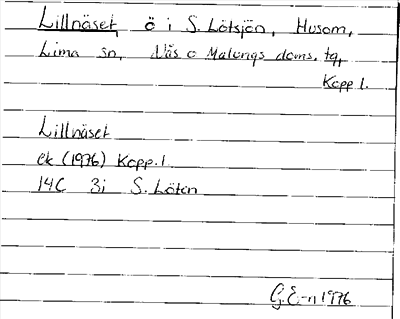 Lillnäset, ö i S. Lötsjön, Husom,
Lima sn, Nås o Malungs doms. tg,
Kopp 1.
Lillnäset
ek (1976) Kopp. 1
14C 3i S. Löten
G. E-n 1976